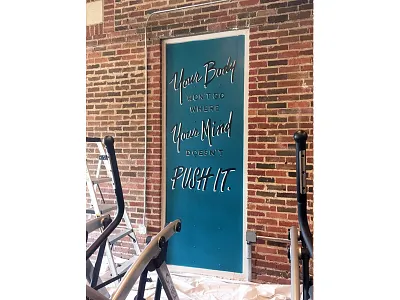 Your Body
WON'T GO
WHERE
Your Mind
DOESN'T
PUSH IT.